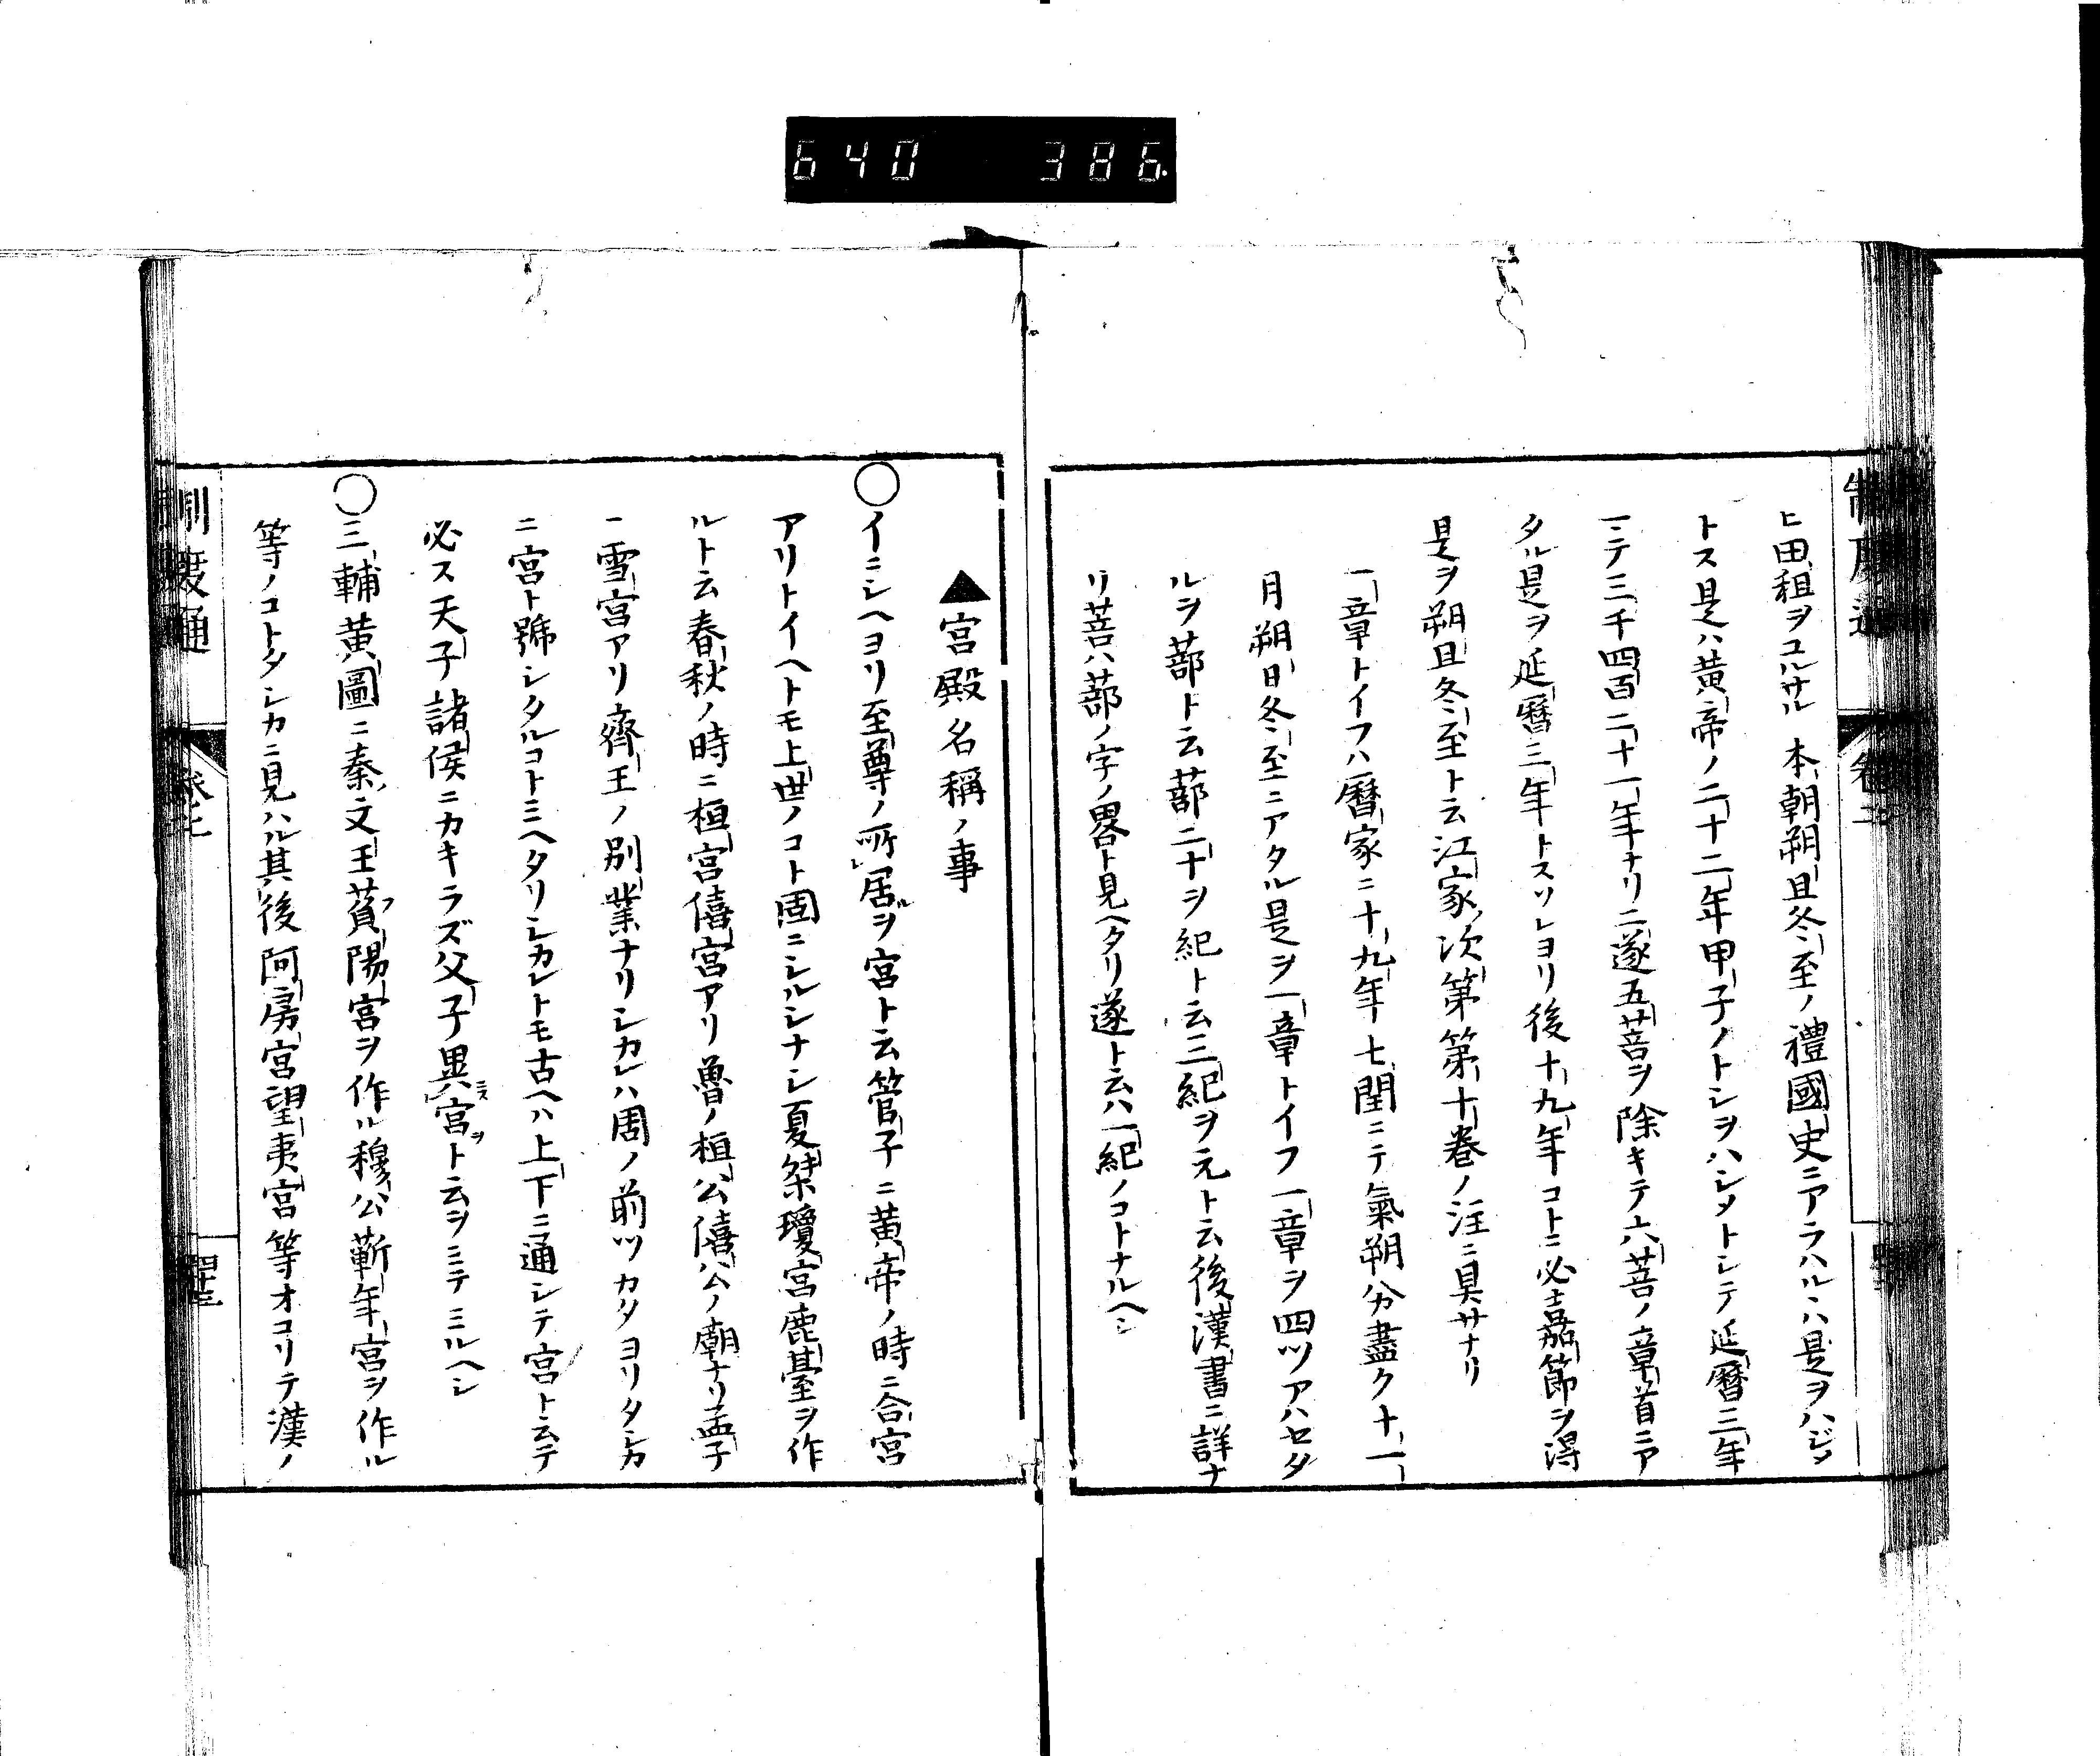 640 386.
制度通 卷二
ヒ田租ヲユルサル 本朝朔旦冬至ノ禮國史ニアラハルヽハ是ヲハジメ
トス是ハ黄帝ノ二十二年甲子ノトシヲハシメトシテ延曆三年
ニテ三千四百二十一年ナリ二遂五蔀ヲ除キテ六蔀ノ章首ニア
タル是ヲ延曆三年トスソレヨリ後十九年コトニ必嘉節ヲ得
是ヲ朔旦冬至ト云江家次第第十卷ノ注ニ具サナリ
一章トイフハ曆家ニ十九年七閏ニテ氣朔分盡ク十一
月朔日冬至ニアタル是ヲ一章トイフ一章ヲ四ツアハセタ
ルヲ蔀ト云蔀二十ヲ紀ト云三紀ヲ元ト云後漢書ニ詳ナ
リ菩ハ蔀ノ字ノ畧ト見ヘタリ遂ト云ハ一紀ノコトナルヘシ
▲宮殿名稱ノ事
○イニシヘヨリ至尊ノ所レ居ルヲ宮ト云管子ニ黄帝ノ時ニ合宮
アリトイヘトモ上世ノコト固ニシルシナシ夏桀瓊宮鹿臺ヲ作
ルト云春秋ノ時ニ桓宮僖宮アリ魯ノ桓公僖公ノ廟ナリ孟子
ニ雪宮アリ齊王ノ別業ナリシカレハ周ノ前ツカタヨリタシカ
ニ宮ト號シタルコトミヘタリシカレトモ古ヘハ上下ニ通シテ宮ト云テ
必ス天子諸侯ニカキラズ父子異ニス宮ヲト云ヲミテミルヘシ
○三輔黄圖ニ秦文王萯フ陽宮ヲ作ル穆公蘄年宮ヲ作ル
等ノコトタシカニ見ハル其後阿房宮望夷宮等オコリテ漢ノ
制度通 卷七 四十三